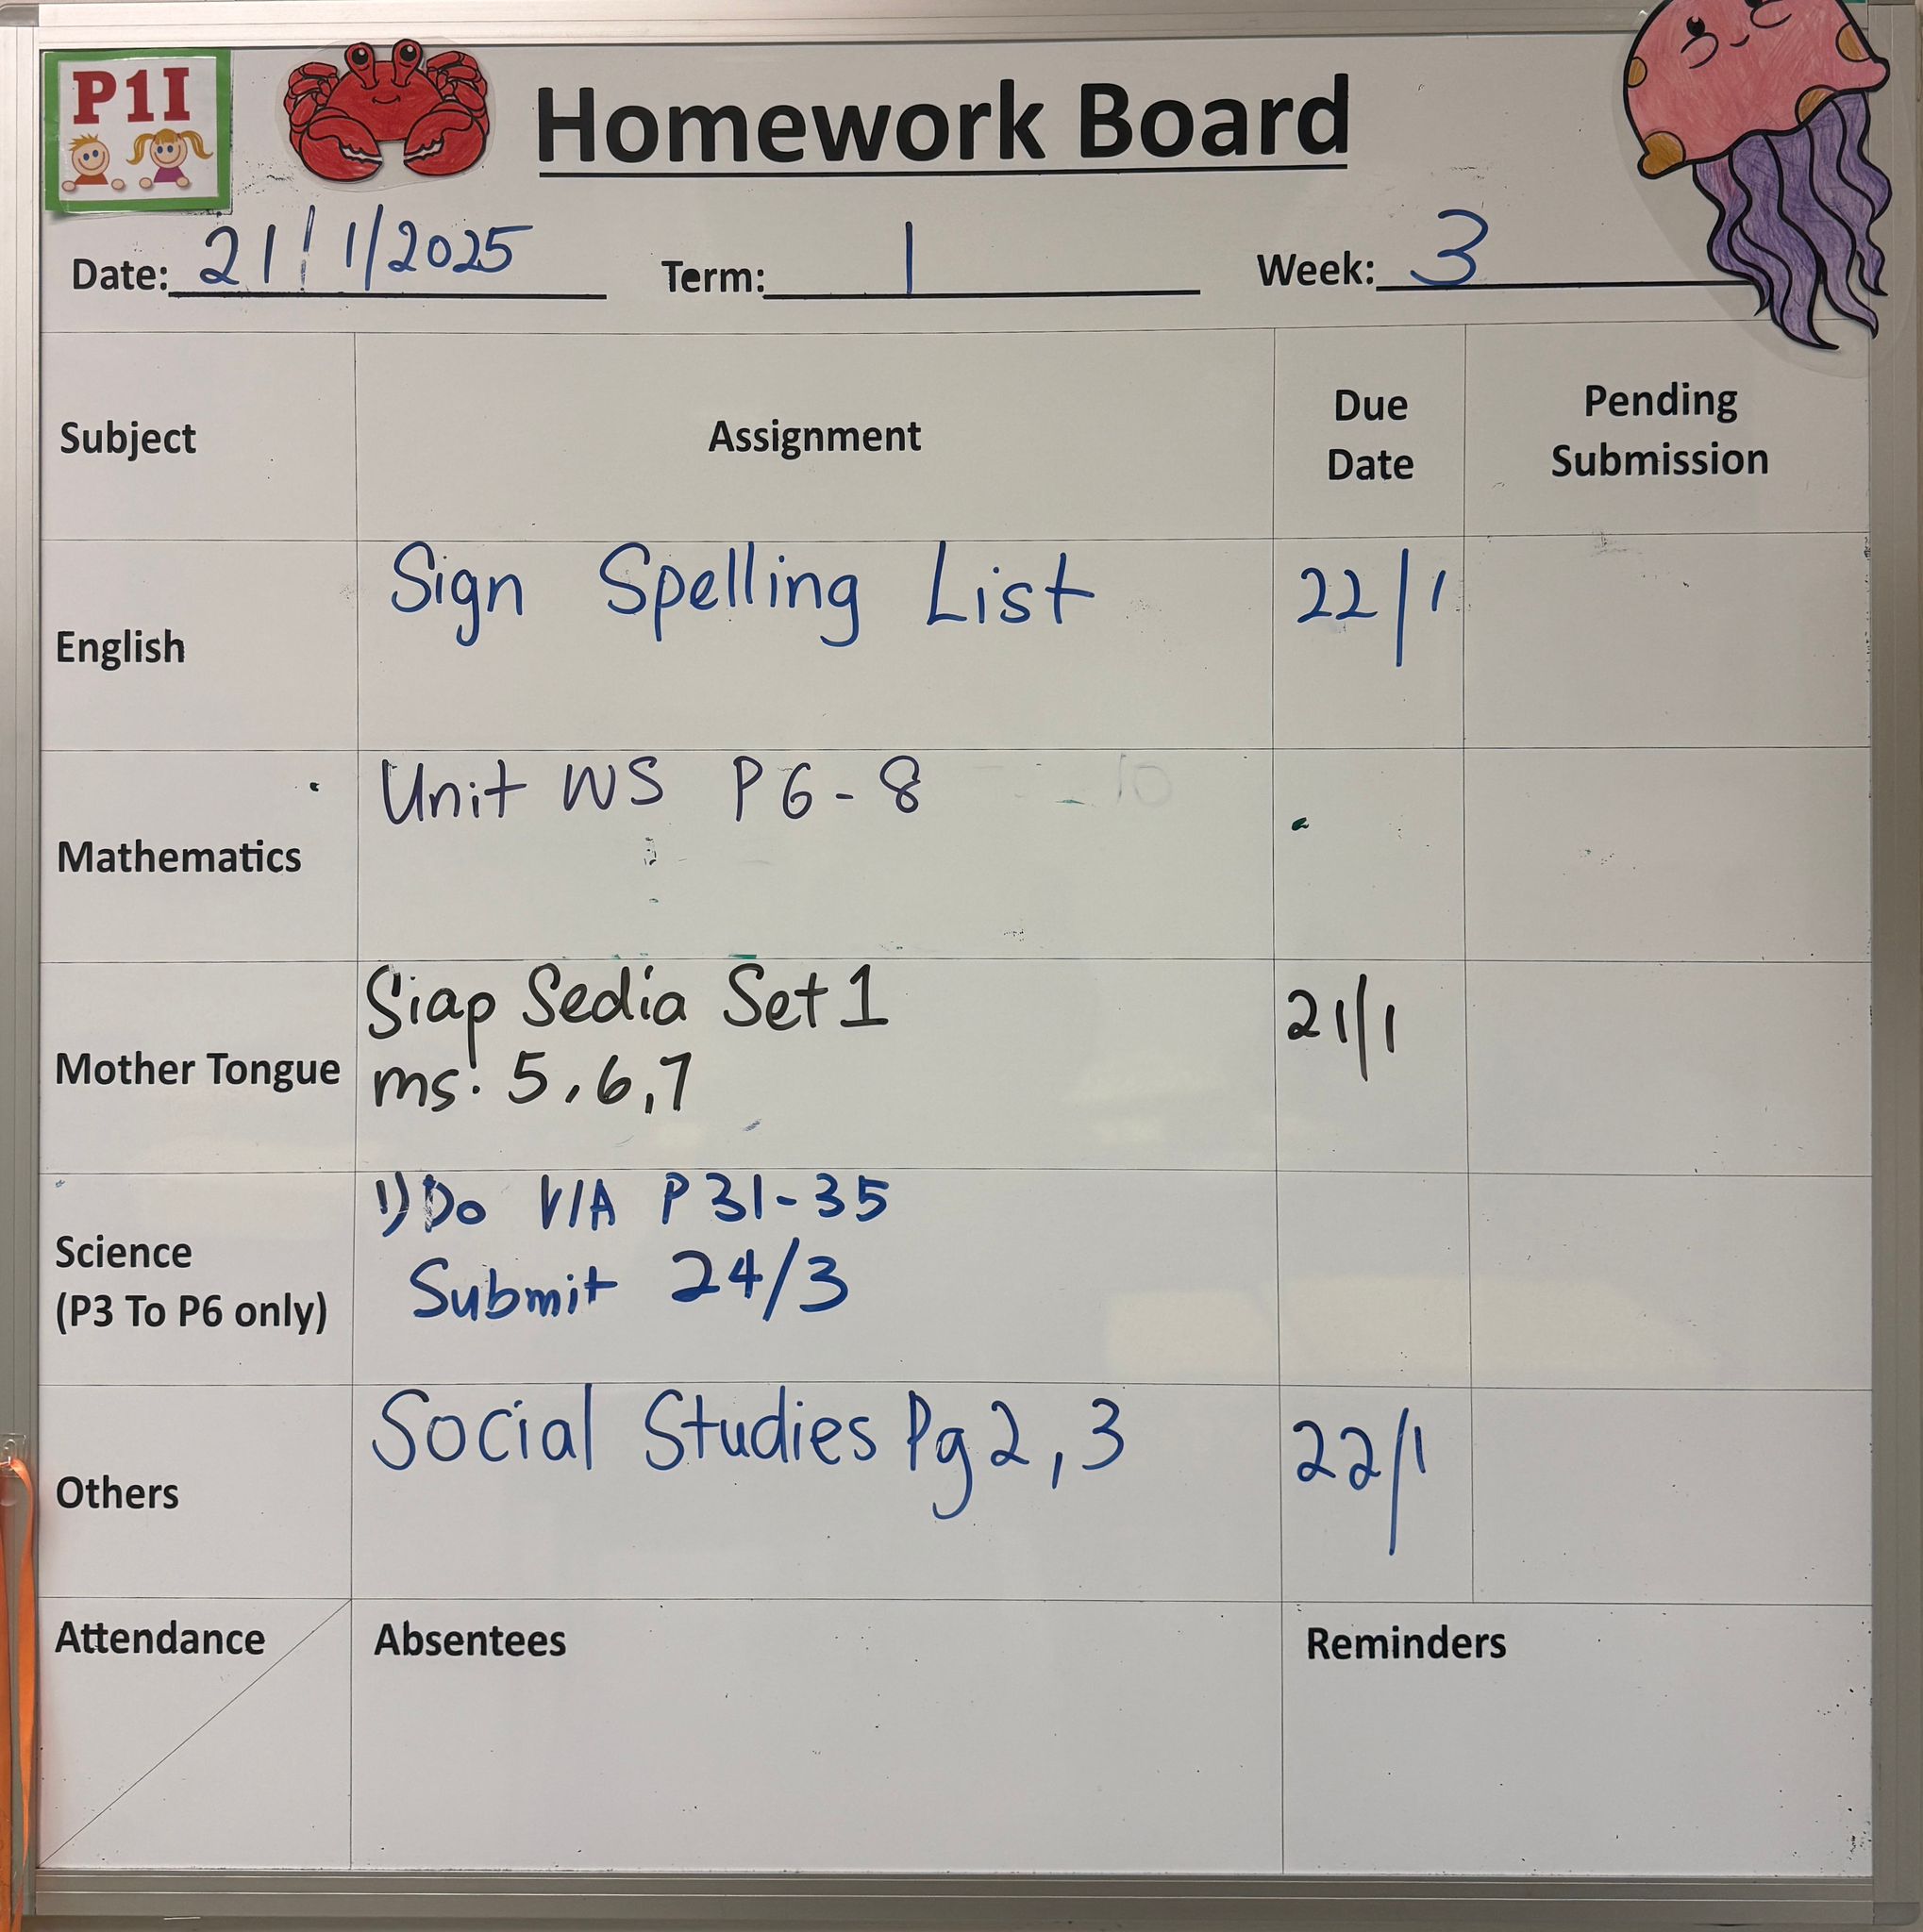 P1I
Homework Board
Date: 21/1/2025 Term: 1 Week: 3
Subject Assignment Due Date Pending Submission
English Sign Spelling List 22/1
Mathematics Unit WS P6-8
Mother Tongue Siap Sedia Set 1 21/1
ms: 5, 6, 7
Science (P3 To P6 only) 1) Do V/A P31-35
Submit 24/3
Others Social Studies Pg 2, 3 22/1
Attendance Absentees Reminders